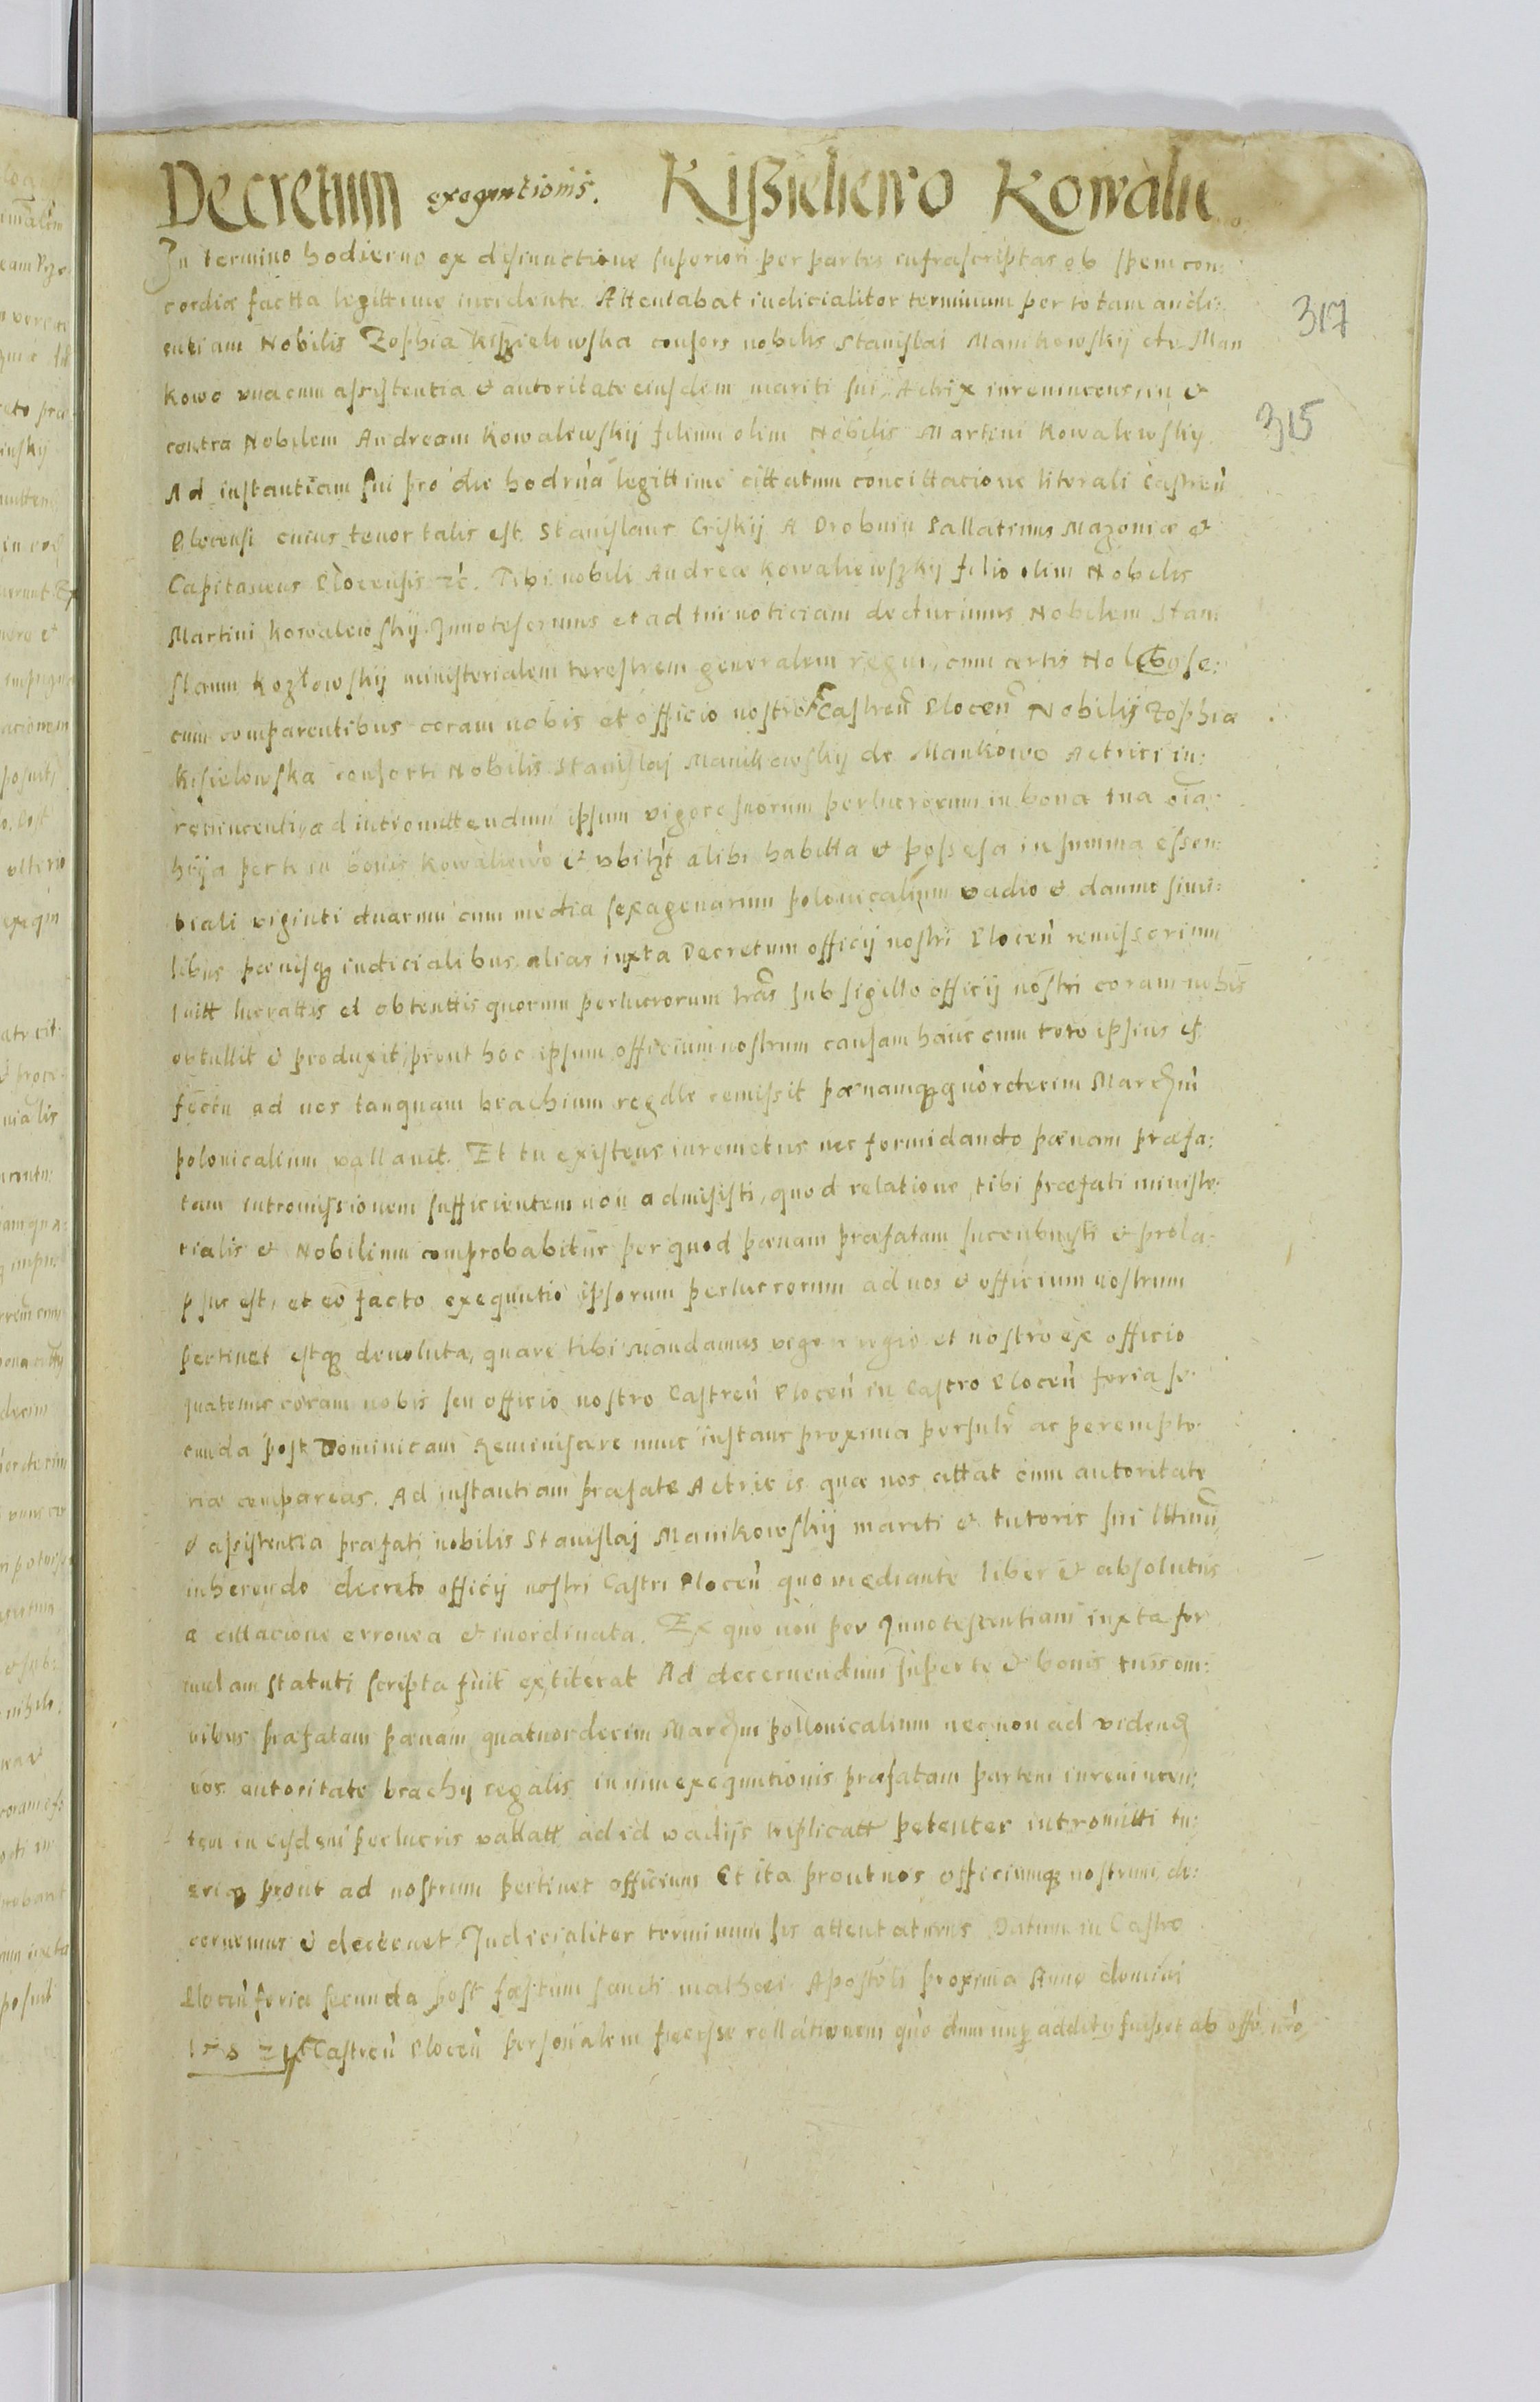 Decretum exequutionis. Kißieliewo Kowalie
In termino hodierno ex disiunctione superiori per partes infrascriptas ob spem con:
cordiæ factta legittime incidente Attentabat iudicialiter terminum per totam audi:
entiam Nobilis Zophia Kißielowska consors nobilis Stanislai Manikowskij de Man
kowo unacum assistentia et autoritate eiusdem mariti sui, Actrix in et
contra Nobilem Andream Kowalewskij filium olim Nobilis Martini Kowalewsky
Ad instantiam sui pro die hodrna legittime cittatum concittacione literali Castren
Plocensi cuius tenor talis est. Stanislaus Criskij A Drobnin Pallatinus Mazoviæ et
Capitaneus Plocensis zc. Tibi nobili Andreæ Kowaliewszky filio olim Nobilis
Martini Kowalewskij Innotescimus et ad tui noticiam deducimus Nobilem Stani
slaum Kozlowskij ministerialem terestrem generalem regni, cum certis Nobilibus se:
cum comparentibus coram nobis et officio nostro Castren Plocen Nobilis Zophiæ
Kisielowska consorti Nobilis Stanislaj Manikowskij de Mankowo Actrici in:
ad intromittendum ipsum vigore suorum perlucrorum in bona tua oia
per te in bonis Kowaliewo et ubi alibi habitta et possesa in summa essen:
tiali viginti duarum cum media sexagenarum polonicalium vadio et damno simi:
libus pœnisq iudicialibus alias iuxta Decretum officij nostri Plocen remissorium
luitt lucrattis et obtenttis quorum perlucrorum lras sub sigillo officij nostri coram nobis
obtullit et produxit, prout hoc ipsum officium nostrum causam hanc cum toto ipsius ef
fectu ad nos tanquam brachium regale remissit pœnamq quordecim Marcm
polonicalium vallavit. Et tu existens inremetus nec formidando pœnam præfa:
tam intromissionem sufficientem non admisisti, quod relatione tibi præfati ministe:
rialis et Nobilium comprobabitur per quod pœnam præfatam sucubuisti et prola:
psus est, et eo facto exequutio ipsorum perlucrorum ad nos et officium nostrum
pertinet estq devoluta, quare tibi mandamus vigore regio et nostro ex officio
quatenus coram nobis seu officio nostro Castren Plocen in Castro Plocen feria se:
cunda post Dominicam Reminiscere nunc instans proxima personlr ac perempto:
riæ compareas. Ad instantiam præfate Actricis quæ nos cittat cum autoritate
et asistentia præfati nobilis Stanislaj Manikowskij mariti et tutoris sui lttimi
inherendo decreto officij nostri Castri Plocen quo mediante liber et absolutus
a cittacione erronea et inordinata. Ex quo non per Innotescentiam iuxta for
mulam statuti scripta fuit extiterat Ad decernendum super te et bonis tuis om:
nibus præfatam pœnam quatuordecim Marcm pollonicalium nec non ad videnq
eos autoritate brachy regalis in vim exequutionis præfatam partem
tem in eisdem perlucris vallatt ad id vadijs triplicatt potenter intromitti tu
eriq prout ad nostrum pertinet officium Et ita prout nos officiumq nostrum de:
cernemus et decernet Judicialiter terminum sis attentaturus Datum in Castro
Plocen feria secunda post festum sancti mathæi Apostoli proxima Anno domini
Castren Plocen personalem fecisse rellationem quo additus fuisset ab offo nro
317
315